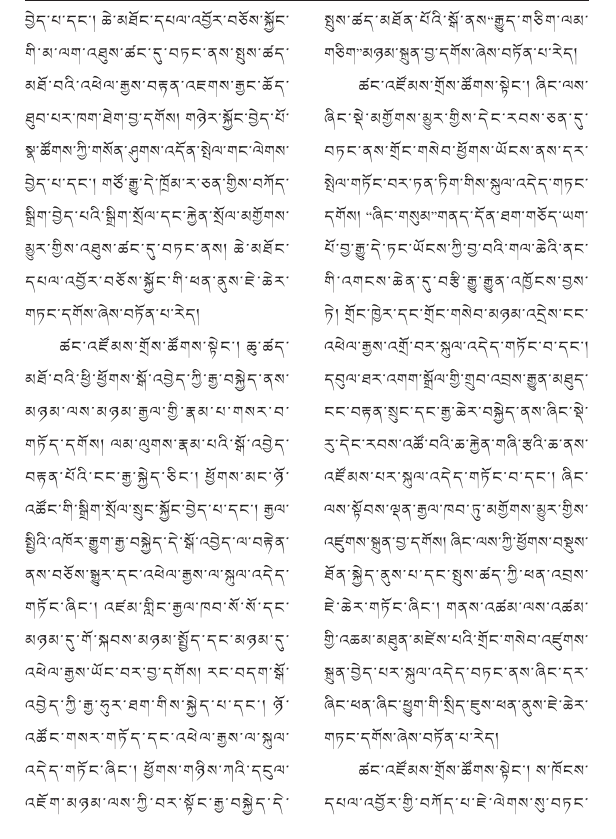 བྱེད་པ་དང་། ཆེ་མཐོང་དཔལ་འབྱོར་བཅོས་སྐྱོང་
གི་མ་ལག་འཐུས་ཚང་དུ་བཏང་ནས་སྤུས་ཚད་
མཐོ་བའི་འཕེལ་རྒྱས་བརྟན་འཇགས་རྒྱང་ཆོད་
ཐུབ་པར་ཁག་ཐེག་བྱ་དགོས། གཉེར་སྐྱོང་བྱེད་པོ་
སྣ་ཚོགས་ཀྱི་གསོན་ཤུགས་འདོན་སྤེལ་གང་ལེགས་
བྱེད་པ་དང་། གཙོ་རྒྱུ་དེ་ཁྲོམ་ར་ཅན་གྱིས་བཀོད་
སྒྲིག་བྱེད་པའི་སྒྲིག་སྲོལ་དང་རྐྱེན་སྲོལ་མགྱོགས་
མྱུར་གྱིས་འཐུས་ཚང་དུ་བཏང་ནས། ཆེ་མཐོང་
དཔལ་འབྱོར་བཅོས་སྐྱོང་གི་ཕན་ནུས་ཇེ་ཆེར་
གཏང་དགོས་ཞེས་བཏོན་པ་རེད།
ཚང་འཛོམས་གྲོས་ཚོགས་སྟེང་། ཆུ་ཚད་
མཐོ་བའི་ཕྱི་ཕྱོགས་སྒོ་འབྱེད་ཀྱི་རྒྱ་བསྐྱེད་ནས་
མཉམ་ལས་མཉམ་རྒྱལ་གྱི་རྣམ་པ་གསར་བ་
གཏོད་དགོས། ལམ་ལུགས་རྣམ་པའི་སྒོ་འབྱེད་
བརྟན་པོའི་ངང་རྒྱ་སྐྱེད་ཅིང་། ཕྱོགས་མང་ཉོ་
འཚོང་གི་སྒྲིག་སྲོལ་སྲུང་སྐྱོང་བྱེད་པ་དང་། རྒྱལ་
སྤྱིའི་འཁོར་རྒྱུག་རྒྱ་བསྐྱེད་དེ་སྒོ་འབྱེད་ལ་བརྟེན་
ནས་བཅོས་སྒྱུར་དང་འཕེལ་རྒྱས་ལ་སྐུལ་འདེད་
གཏོང་ཞིང་། འཛམ་གླིང་རྒྱལ་ཁབ་སོ་སོ་དང་
མཉམ་དུ་གོ་སྐབས་མཉམ་སྤྱོད་དང་མཉམ་དུ་
འཕེལ་རྒྱས་ཡོང་བར་བྱ་དགོས། རང་བདག་སྒོ་
འབྱེད་ཀྱི་རྒྱ་ཧུར་ཐག་གིས་སྐྱེད་པ་དང་། ཉོ་
འཚོང་གསར་གཏོད་དང་འཕེལ་རྒྱས་ལ་སྐུལ་
འདེད་གཏོང་ཞིང་། ཕྱོགས་གཉིས་ཀའི་དངུལ་
འཇོག་མཉམ་ལས་ཀྱི་བར་སྟོང་རྒྱ་བསྐྱེད་དེ་
སྤུས་ཚད་མཐོན་པོའི་སྒོ་ནས་“རྒྱུད་གཅིག་ལམ་
གཅིག”མཉམ་སྐྲུན་བྱ་དགོས་ཞེས་བཏོན་པ་རེད།
ཚང་འཛོམས་གྲོས་ཚོགས་སྟེང་། ཞིང་ལས་
ཞིང་སྡེ་མགྱོགས་མྱུར་གྱིས་དེང་རབས་ཅན་དུ་
བཏང་ནས་གྲོང་གསེབ་ཕྱོགས་ཡོངས་ནས་དར་
སྤེལ་གཏོང་བར་ཏན་ཏིག་གིས་སྐུལ་འདེད་གཏང་
དགོས། “ཞིང་གསུམ”གནད་དོན་ཐག་གཅོད་ཡག་
པོ་བྱ་རྒྱུ་དེ་ཏང་ཡོངས་ཀྱི་བྱ་བའི་གལ་ཆེའི་ནང་
གི་འགངས་ཆེན་དུ་བརྩི་རྒྱུ་རྒྱུན་འཁྱོངས་བྱས་
ཏེ། གྲོང་ཁྱེར་དང་གྲོང་གསེབ་མཉམ་འདྲེས་ངང་
འཕེལ་རྒྱས་འགྲོ་བར་སྐུལ་འདེད་གཏོང་བ་དང་།
དབུལ་ཐར་འགག་སྒྲོལ་གྱི་གྲུབ་འབྲས་རྒྱུན་མཐུད་
ངང་བརྟན་སྲུང་དང་རྒྱ་ཆེར་བསྐྱེད་ནས་ཞིང་སྡེ་
རུ་དེང་རབས་འཚོ་བའི་ཆ་རྐྱེན་གཞི་རྩའི་ཆ་ནས་
འཛོམས་པར་སྐུལ་འདེད་གཏོང་བ་དང་། ཞིང་
ལས་སྟོབས་ལྡན་རྒྱལ་ཁབ་ཏུ་མགྱོགས་མྱུར་གྱིས་
འཛུགས་སྐྲུན་བྱ་དགོས། ཞིང་ལས་ཀྱི་ཕྱོགས་བསྡུས་
ཐོན་སྐྱེད་ནུས་པ་དང་སྤུས་ཚད་ཀྱི་ཕན་འབྲས་
ཇེ་ཆེར་གཏོང་ཞིང་། གནས་འཚམ་ལས་འཚམ་
གྱི་འཆམ་མཐུན་མཛེས་པའི་གྲོང་གསེབ་འཛུགས་
སྐྲུན་བྱེད་པར་སྐུལ་འདེད་བཏང་ནས་ཞིང་དར་
ཞིང་ཕན་ཞིང་ཕྱུག་གི་སྲིད་ཇུས་ཕན་ནུས་ཇེ་ཆེར་
གཏང་དགོས་ཞེས་བཏོན་པ་རེད།
ཚང་འཛོམས་གྲོས་ཚོགས་སྟེང་། ས་ཁོངས་
དཔལ་འབྱོར་གྱི་བཀོད་པ་ཇེ་ལེགས་སུ་བཏང་